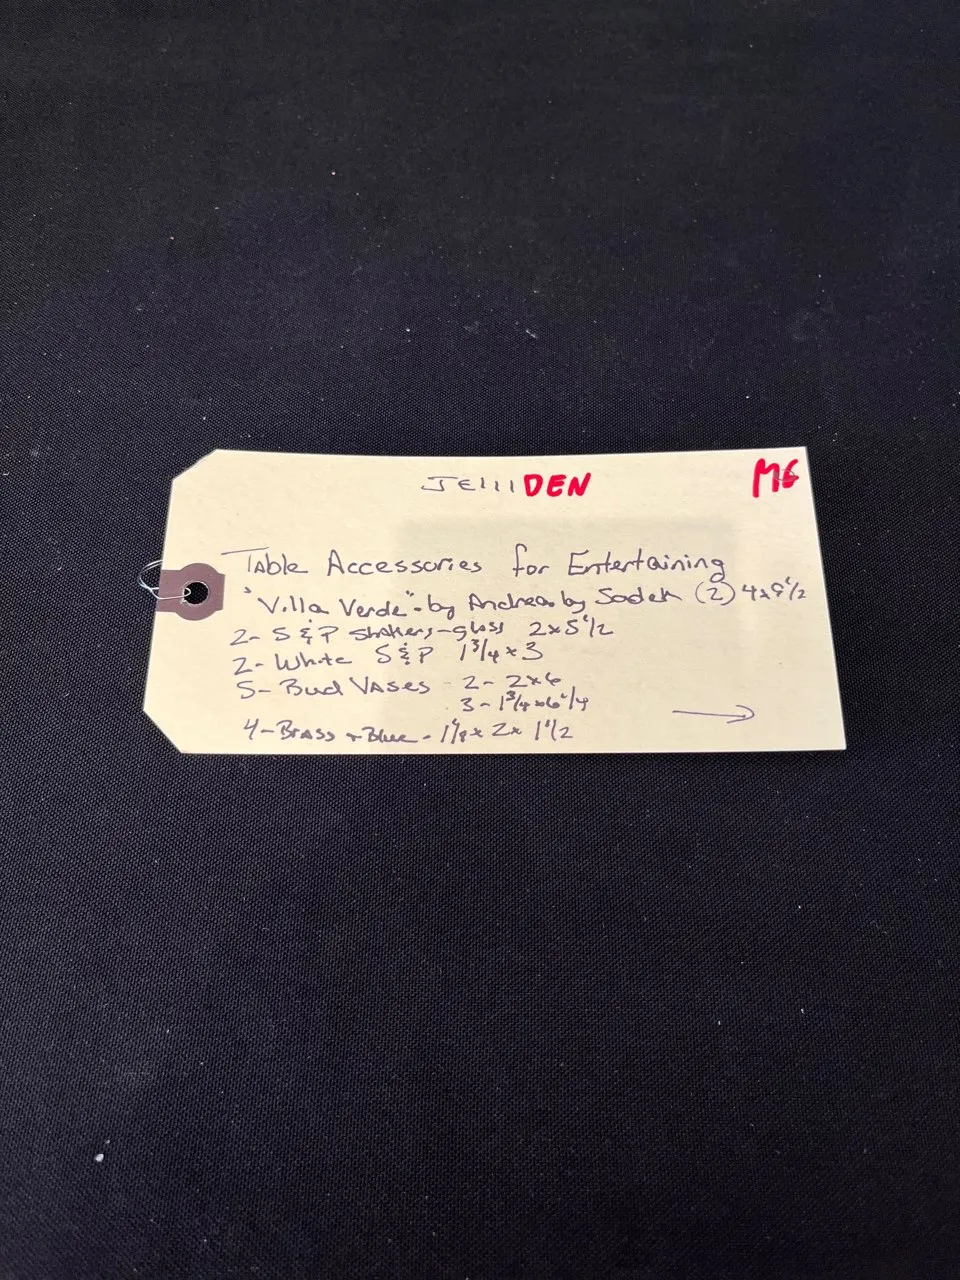 DEN
Table Accessories for Entertaining
"Villa Verde"-by Andrea by Sadek (2) 4x9 1/2
2- S&P Shakers-glass 2x5 1/2
2- White S&P 1 3/4 x 3
5- Bud Vases 2- 2x6
3- 1 3/4 x 6 1/4
4- Brass + Blue - 1 1/8 x 2 x 1 1/2